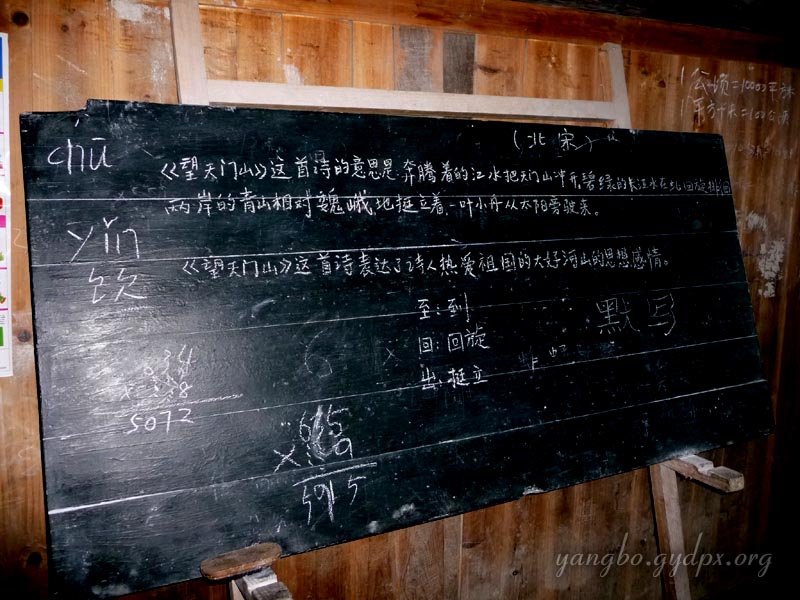 chū
(北宋)
《望天门山》这首诗的意思是奔腾着的江水把天门山冲开,碧绿的长江水在此回旋
两岸的青山相对巍峨地挺立着,一叶小舟从太阳旁驶来。
yǐn
饮
《望天门山》这首诗表达了诗人热爱祖国的大好海山的思想感情。
至:到
回:回旋
出:挺立
默写
634
8
5072
×
5915
1公顷=10000平方米
yangbo.gydpx.org